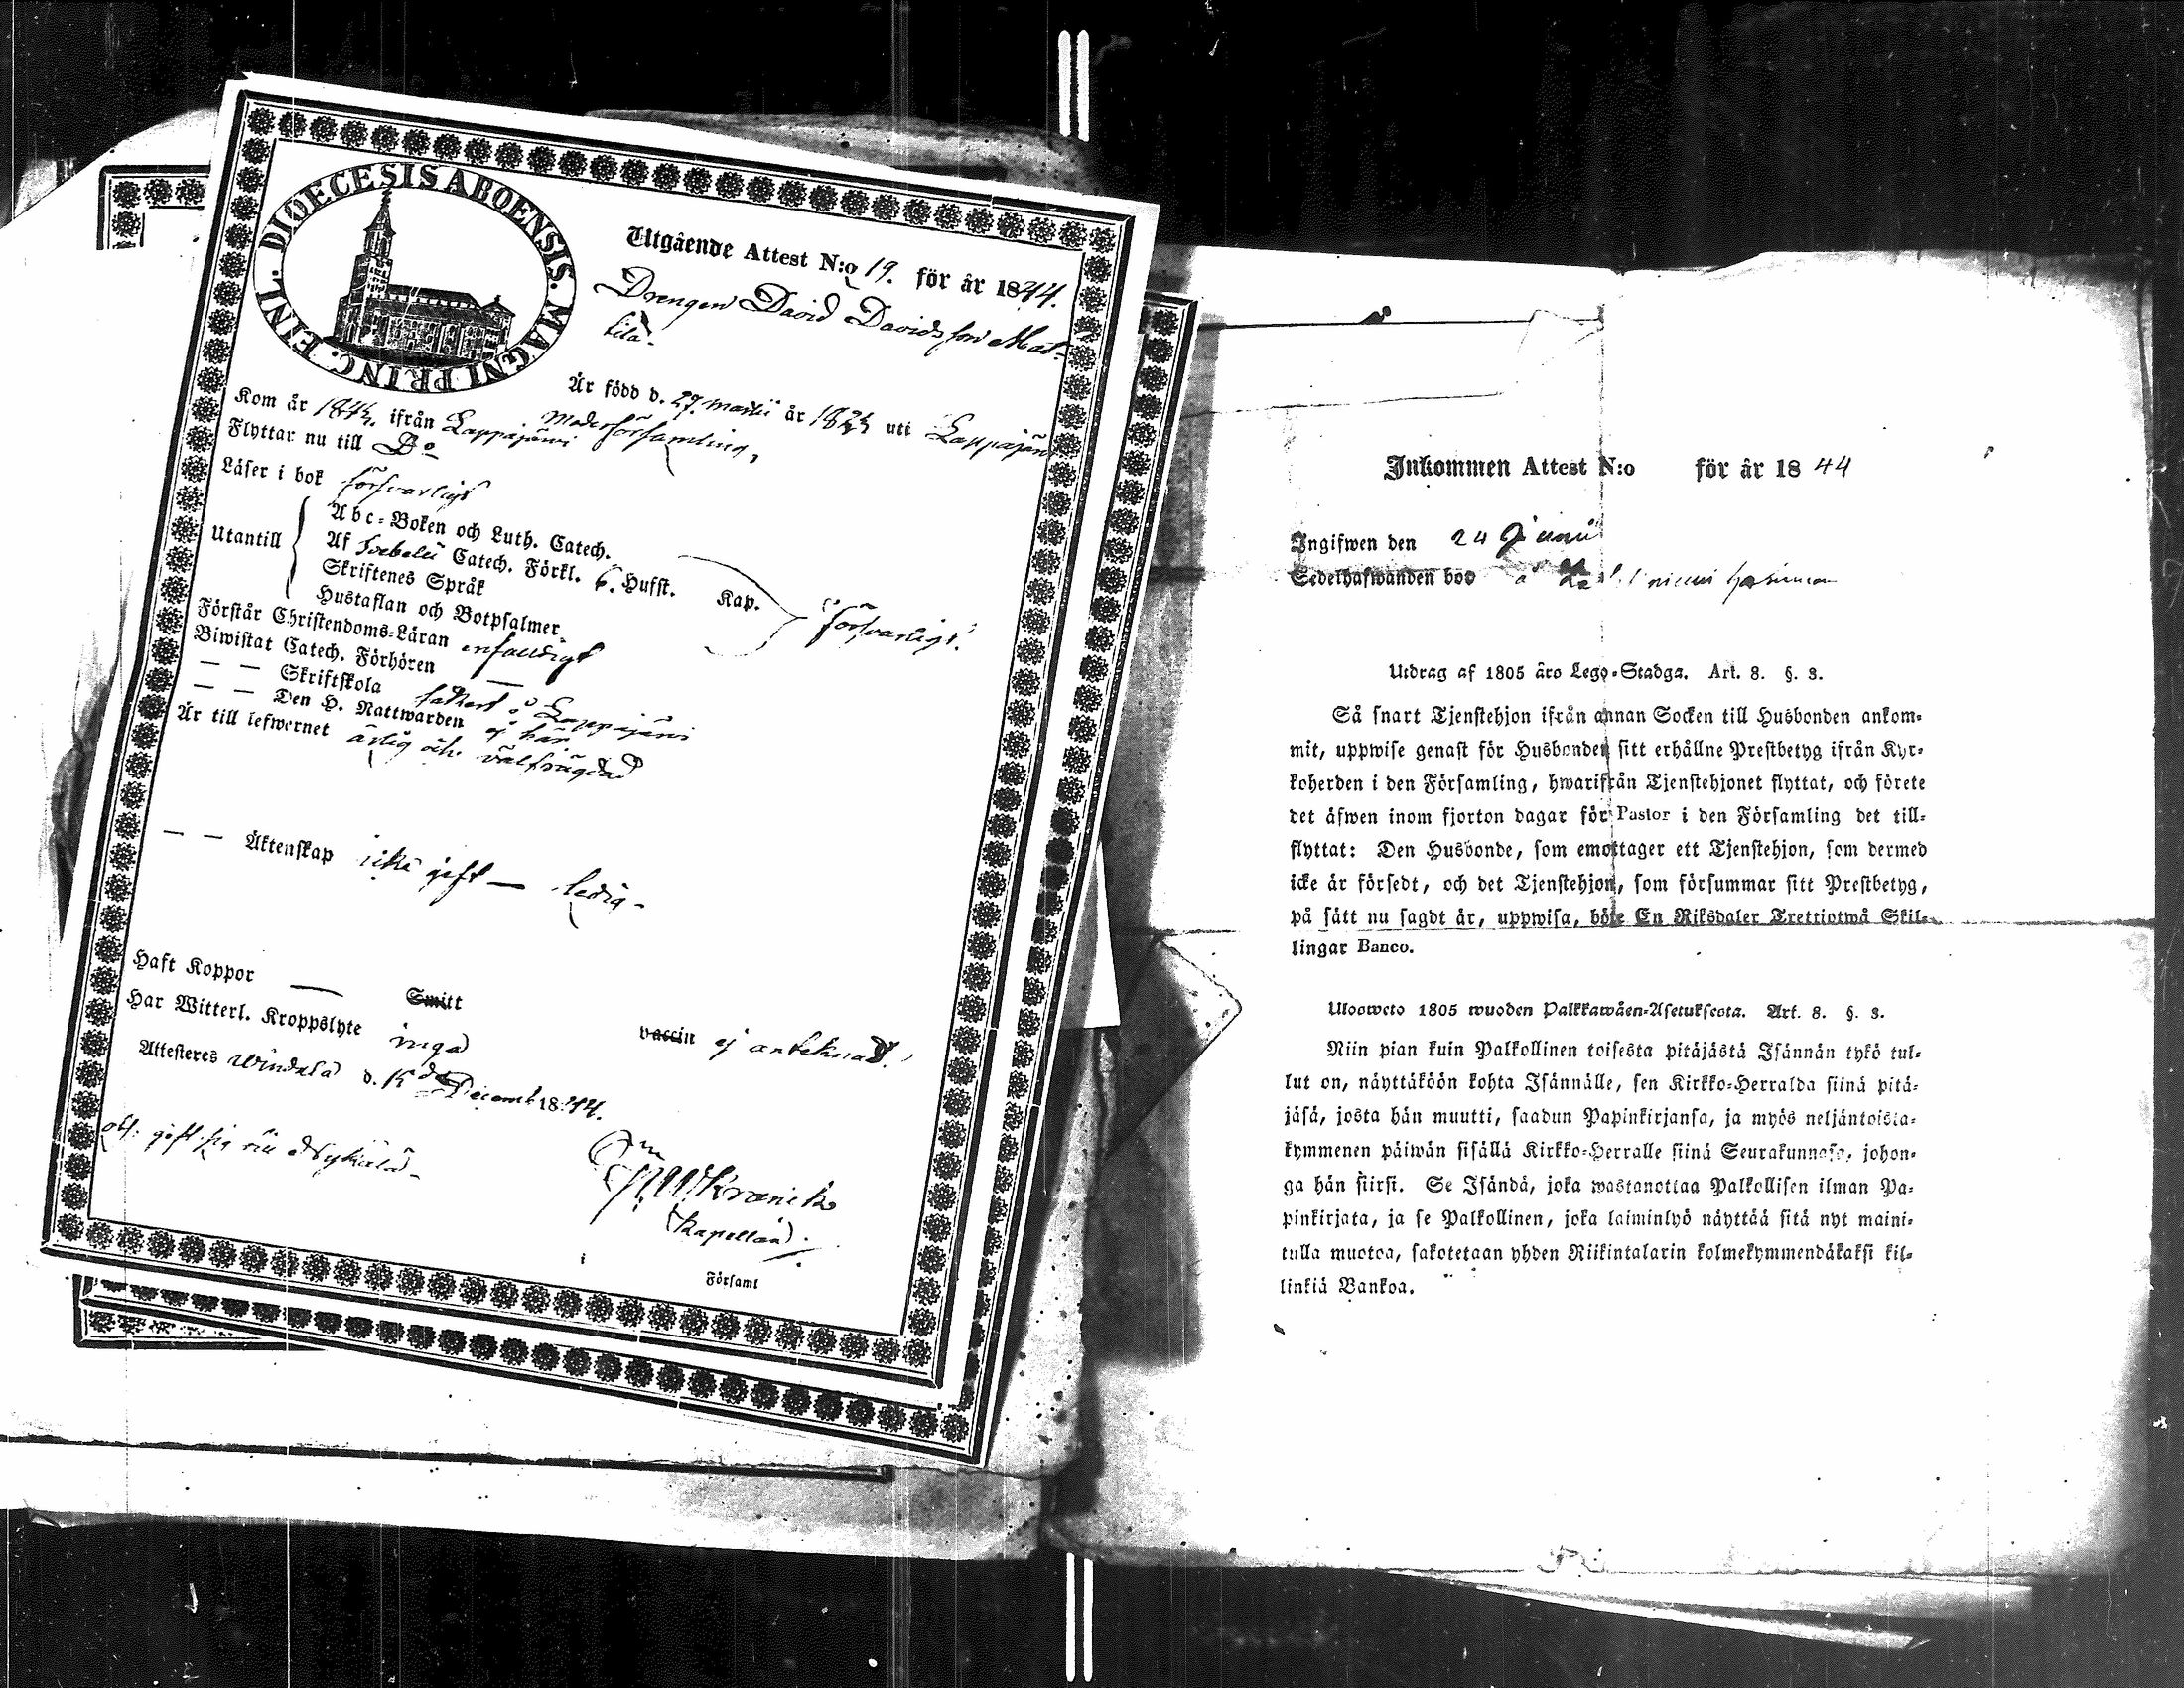 DIOECESIS ABOENSIS. MAGNI PRINC. FINL.
Utgående Attest N:o 19. för år 1844.
Drengen David Davidsson Mat-
tila.
Är född d. 27. martii år 1823 uti Lappajärvi
Kom år 1843. ifrån Lappajärvi moderförsamling,
Flyttar nu till Do
Läser i bok försvarligt
Utantill
Abc-Boken och Luth. Catech.
Af Svebelii Catech. Förkl. 6. Hufst. Kap.
Skriftenes Språk
Hustaflan och Botpsalmer
försvarligt.
Förstår Christendoms-Läran enfaldigt
Biwistat Catech. Förhören —
— — Skriftskola i Lappajärvi
— — Den H. Nattwarden ej här
Är till lefwernet ärlig och välfrägdad
— — Äktenskap icke gift — ledig-
Haft Koppor — Smitt vaccin ej anteknad!
Har Witterl. Kroppslyte inga
Attesteres Windala d. 15 de Decemb 1844.
gift sig till Nykälä-
Kranck
Kapellan.
i Församl
Inkommen Attest N:o för år 1844
Ingifwen den 24 Junii
Sedelhafwanden boo å
Utdrag af 1805 åro Lego-Stadga. Art. 8. §. 3.
Så snart Tjenstehjon ifrån annan Socken till Husbonden ankom-
mit, uppwise genast för Husbonden sitt erhållne Prestbetyg ifrån Kyr-
koherden i den Församling, hwarifrån Tjenstehjonet flyttat, och förete
det äfwen inom fjorton dagar för Pastor i den Församling det till-
flyttat: Den Husbonde, som emottager ett Tjenstehjon, som dermed
icke är försedt, och det Tjenstehjon, som försummar sitt Prestbetyg,
på sätt nu sagdt är, uppwisa, böte En Riksdaler Trettiotwå Skil-
lingar Banco.
Uloosweto 1805 wuoden Palkkawäen-Asetuksesta. Art. 8. §. 3.
Niin pian kuin Palkollinen toisesta pitäjästä Isännän tykö tul-
lut on, näyttäköön kohta Isännälle, sen Kirkko-Herralda siinä pitä-
jäsä, josta hän muutti, saadun Papinkirjansa, ja myös neljäntoista-
kymmenen päiwän sisällä Kirkko-Herralle siinä Seurakunnasa, johon-
ga hän siirsi. Se Isändä, joka wastanottaa Palkollisen ilman Pa-
pinkirjata, ja se Palkollinen, joka laiminlyö näyttää sitä nyt maini-
tulla muotoa, sakotetaan yhden Riikintalarin kolmekymmendäkaksi kil-
linkiä Bankoa.